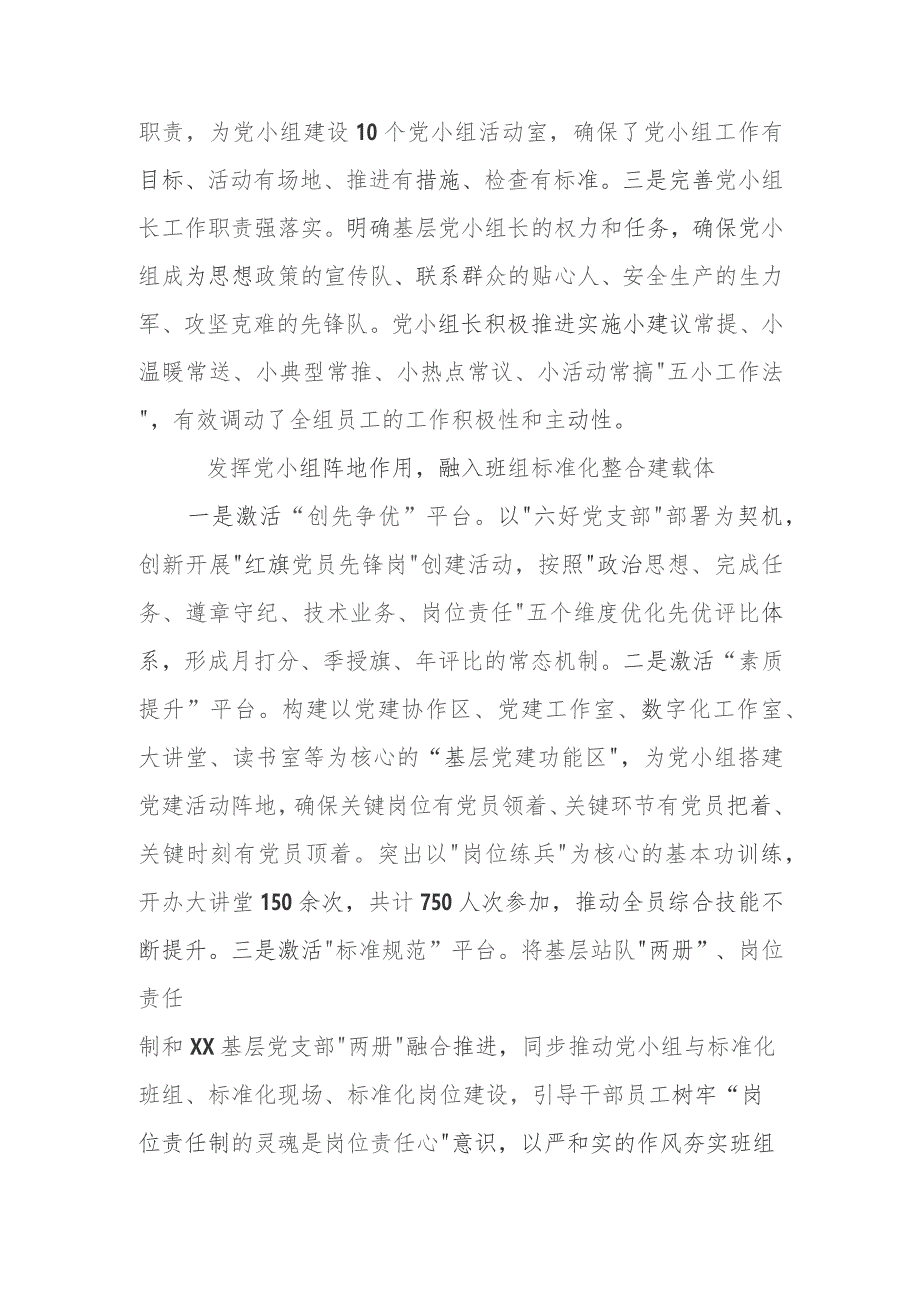 职责，为党小组建设 10 个党小组活动室，确保了党小组工作有
目标、活动有场地、推进有措施、检查有标准。三是完善党小组
长工作职责强落实。明确基层党小组长的权力和任务，确保党小
组成为思想政策的宣传队、联系群众的贴心人、安全生产的生力
军、攻坚克难的先锋队。党小组长积极推进实施小建议常提、小
温暖常送、小典型常推、小热点常议、小活动常搞"五小工作法
"，有效调动了全组员工的工作积极性和主动性。
发挥党小组阵地作用，融入班组标准化整合建载体
一是激活“创先争优”平台。以"六好党支部"部署为契机，
创新开展"红旗党员先锋岗"创建活动，按照"政治思想、完成任
务、遵章守纪、技术业务、岗位责任"五个维度优化先优评比体
系，形成月打分、季授旗、年评比的常态机制。二是激活“素质
提升”平台。构建以党建协作区、党建工作室、数字化工作室、
大讲堂、读书室等为核心的“基层党建功能区"，为党小组搭建
党建活动阵地，确保关键岗位有党员领着、关键环节有党员把着、
关键时刻有党员顶着。突出以"岗位练兵"为核心的基本功训练，
开办大讲堂 150 余次，共计 750 人次参加，推动全员综合技能不
断提升。三是激活"标准规范”平台。将基层站队"两册”、岗位
责任
制和 XX 基层党支部"两册"融合推进，同步推动党小组与标准化
班组、标准化现场、标准化岗位建设，引导干部员工树牢“岗
位责任制的灵魂是岗位责任心"意识，以严和实的作风夯实班组